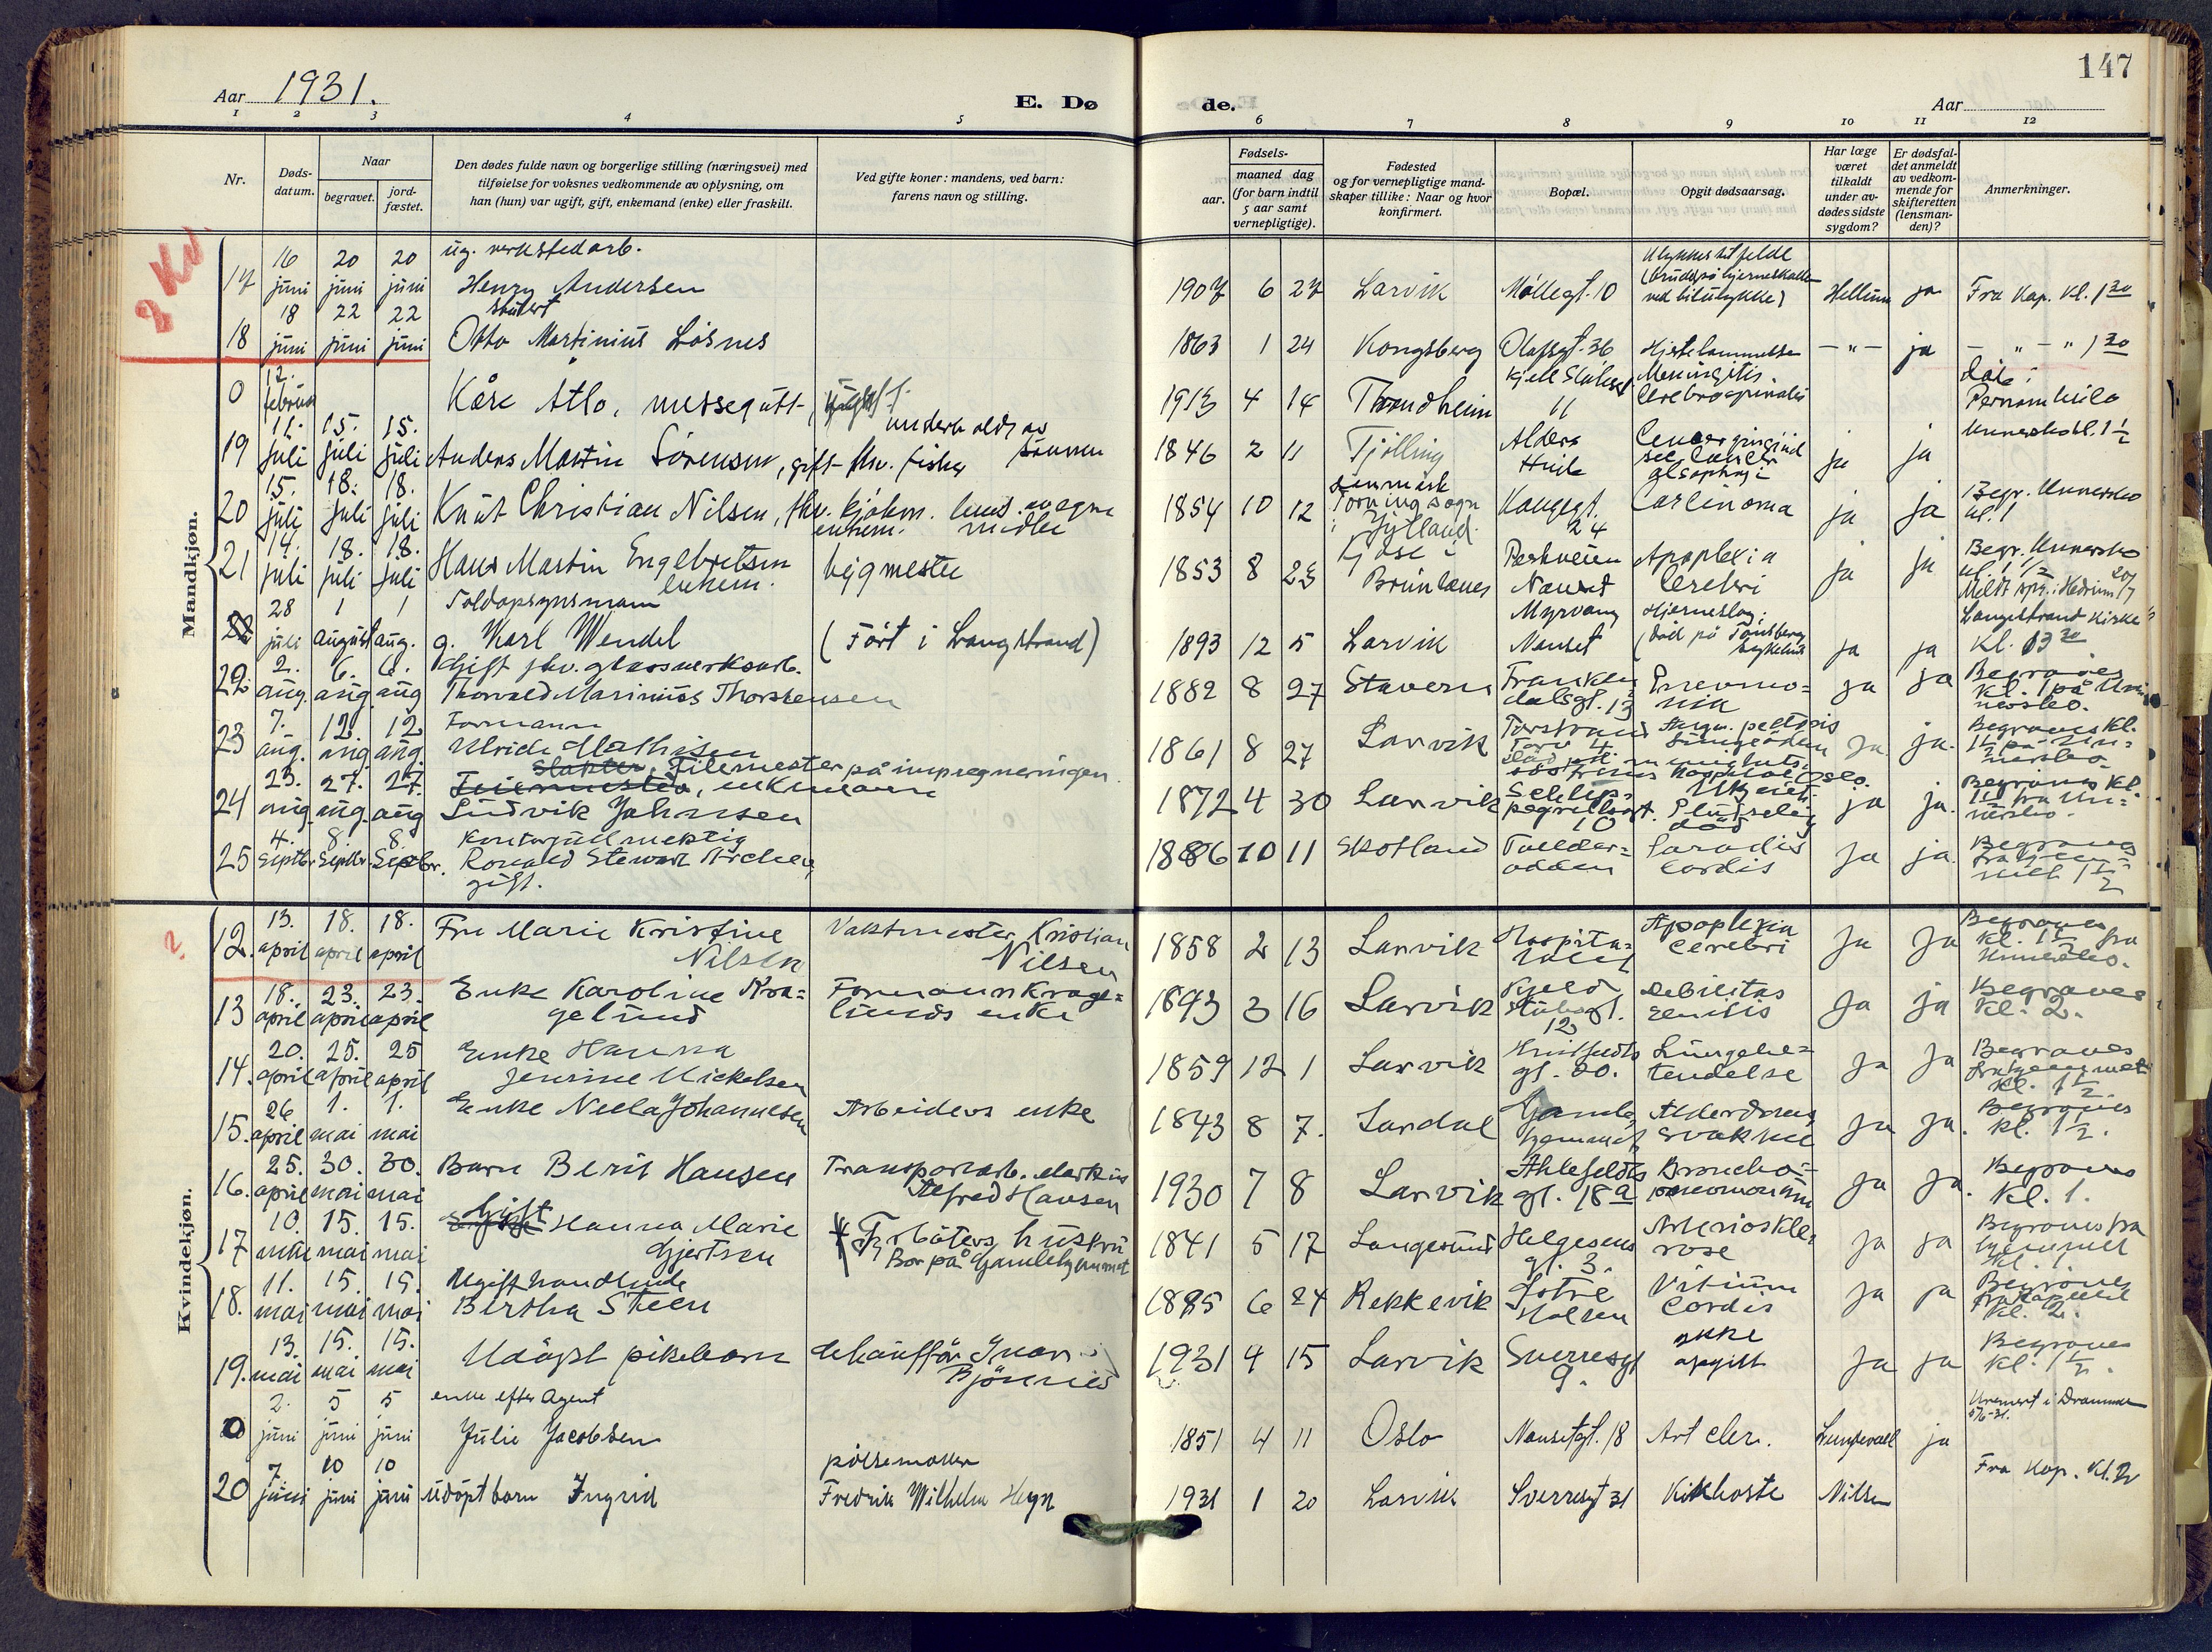 147
Aar 1931.
E. Døde.
Aar
1 2 3 4 5 6 7 8 9 10 11 12
Nr.
Døds-datum.
Naar
begravet.
jord-fæstet.
Den dødes fulde navn og borgerlige stilling (næringsvei) med
tilføielse for voksnes vedkommende av oplysning, om
han (hun) var ugift, gift, enkemand (enke) eller fraskilt.
Ved gifte koner: mandens, ved barn:
farens navn og stilling.
Fødsels-
aar.
maaned dag
(for barn indtil
5 aar samt
vernepligtige).
Fødested
og for vernepligtige mand-
skaper tillike: Naar og hvor
konfirmert.
Bopæl.
Opgit dødsaarsag.
Har læge
været
tilkaldt
under av-
dødes sidste
sygdom?
Er dødsfal-
det anmeldt
av vedkom-
mende for
skifteretten
(lensman-
den)?
Anmerkninger.
Mandkjøn.
17 16 juni 20 juni 20 juni ug. verkstedarb. Henry Andersen 1907 6 27 Larvik Møllegt. 10 ved bilulykke) Hellum ja Fra Kap. Kl. 1 30
18 18 juni 22 juni 22 juni Otto Martinius Løsnes 1863 1 24 Kongsberg Olafsgt. 36 Hjertelammelse — " — ja — " — " 1 30
0 12. februar Kåre Atlo, messegutt, ugift 1913 4 14 Trondheim Meningitis Cerebrospinalis
19 11. juli 15. juli 15. juli Anders Martin Sørensen, gift fhv. fisker underholdt av sønnen 1846 2 11 Tjølling Alders Hvile ja ja
20 15. juli 18. juli 18. juli Knut Christian Nilsen, fhv. kjøbm. enkem. av egne midler 1854 10 12 Torning sogn i Jylland Kongegt. 24 Carcinoma ja ja Begr. Kl. 1
21 14. juli 18. juli 18. juli Hans Martin Engebretsen enkem. byggmester 1853 8 23 Kjose i Brunlanes Parkveien Nanset Apoplexia Cerebri ja ja
28 juli 1 august 1 aug. Toldopsynsmann g. Karl Wendel (Ført i Langestrand) 1893 12 5 Larvik Myrvang Nanset Hjerneslag. (død på Tønsberg sykehus ja ja Langestrand Kirke Kl. 13 30
22. 2. aug. 6. aug. 6. aug Gift fhv. glassverksarb. Thorvald Marinius Thorstensen 1882 8 27 Stavern Frankendalsgt. 13 Pnevmonia ja ja Begraves Kl. 1 på
23 7. aug. 12. aug. 12 aug. Formann Ulrich Mathisen 1861 8 27 Larvik Torstrand Torv 4. Angin. pectoris ja ja. Begraves Kl.
24 23. aug 27. aug. 27. aug Slakter, Filemester på impregneringen. Feiermester, enkemann Ludvik Johnsen 1872 4 30 Larvik 10 Plutselig død ja ja. Begraves Kl.
25 4. Septbr. 8. Septbr. 8. Septbr. Kontorfullmektig Ronald Stewart Archer, gift. 1886 10 11 Skotland Tollderodden Paradis Cordis ja ja. Begraves 1 1/2
Kvindekjøn.
12. 13. april 18. april 18. april Fru Marie Kristine Nilsen Vaktmester Kristian Nilsen 1858 2 13 Larvik Hospitalet Apoplexia Cerebri ja ja Begraves Kl. 1 1/2 fra
13 18. april 23. april 23. april Enke Karoline Kragelund Formann Kragelunds enke 1843 3 16 Larvik 12 Debilitas senilis ja ja Begraves Kl. 2.
14. 20. april 25. april 25 april Enke Hanna Jensine Mickelsen 1859 12 1 Larvik Huitfeldts gt. 20. Lungebetendelse ja ja Begraves Kl. 1 1/2.
15. 26 april 1. mai 1. mai Enke Neela Johannesen Arbeiders enke 1843 8 7. Lardal Gamlehjemmet Alderdomssvakhet ja ja. Begraves Kl. 1 1/2.
16. 25. april 30. mai 30. mai Barn Berit Hansen Transportarb. Markus Alfred Hansen 1930 7 8 Larvik Ahlefeldts gt. 18a Bronchopneumonia ja ja. Begraves Kl. 1.
17 10. mai 15. mai 15. mai Gift Hanna Marie Gjertsen Bor på Gamlehjemmet 1841 5 17 Langesund Helgesens gt. 3. Arteriosklerose ja ja Begraves fra hjemmet Kl. 1.
18. 11. mai 15. mai 15. mai Ugift handlende Bertha Steen 1885 6 24 Rekkevik Østre Halsen Vitium Cordis ja ja Begraves fra kapellet Kl. 2.
19. 13. mai 15. mai 15. mai Udøpt pikebarn Chauffør Ivar Bjønnes 1931 4 15 Larvik Sverresgt 9. ikke opgitt ja ja Begraves Kl. 1 1/2.
0 2. juni 5 juni 5 juni enke efter Agent Julie Jacobsen 1851 4 11 Oslo Nansetgt. 18 Art cler. Lundevall ja Kremert i Drammen 5/6-31.
20 7. juni 10 juni 10 juni udøpt barn Ingrid pølsemaker Fredrik Wilhelm Heyn 1931 1 20 Larvik Sverresgt 31 Kikhoste Nilsen Fra Kap. Kl. 2